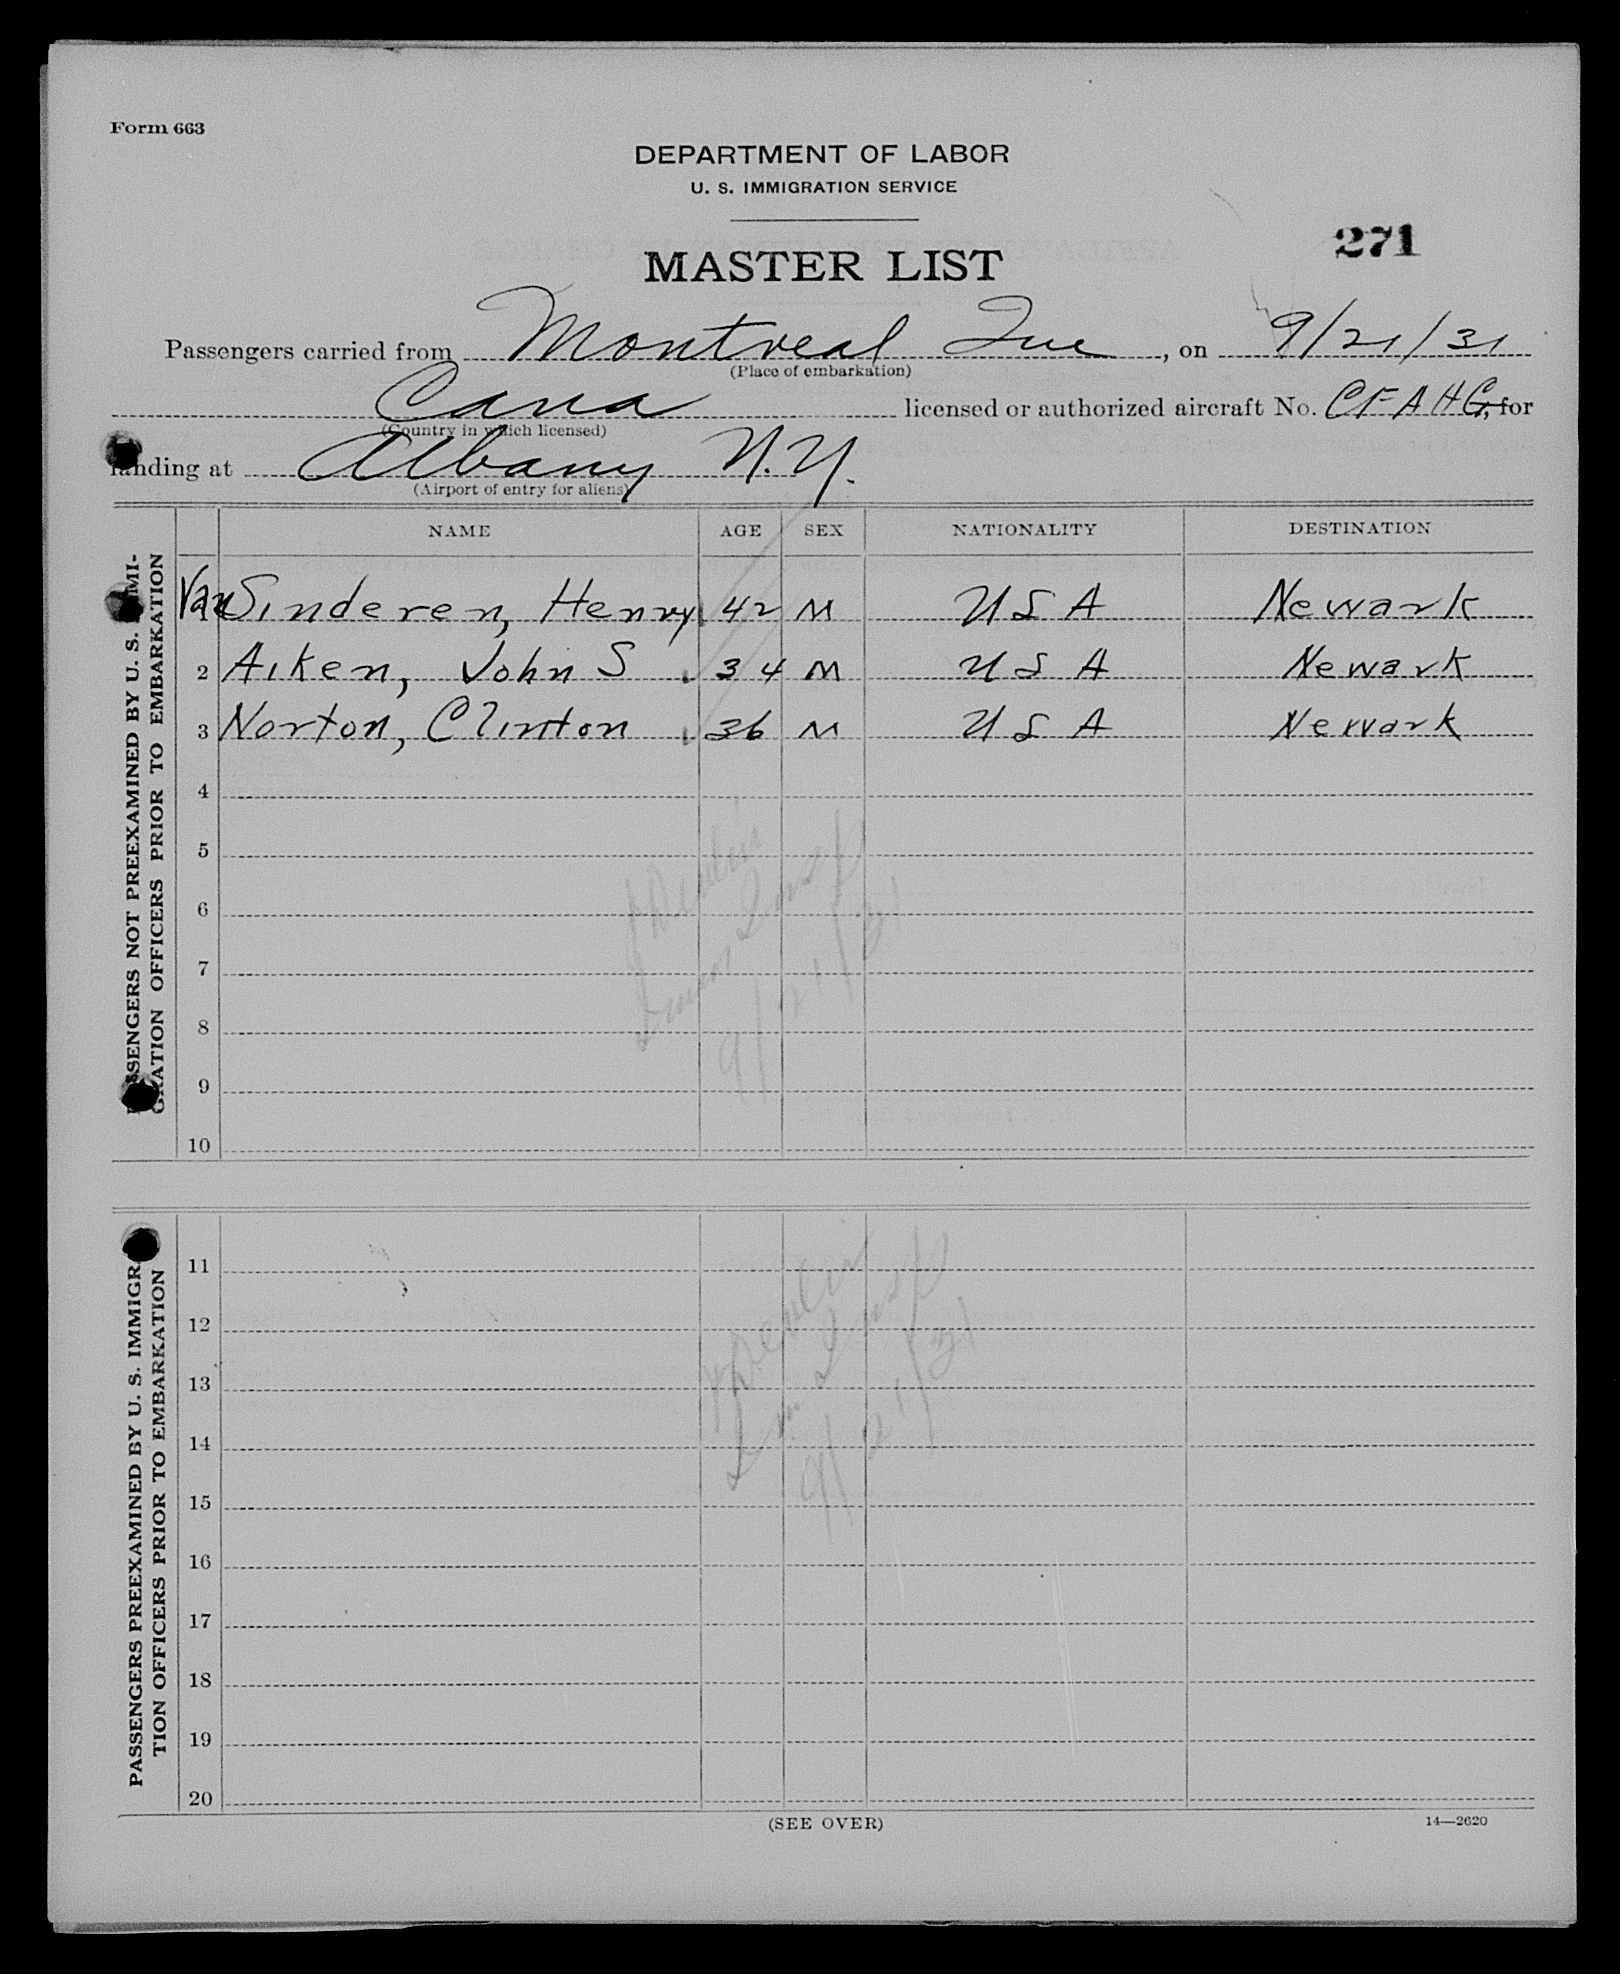 Form 663
DEPARTMENT OF LABOR
U. S. IMMIGRATION SERVICE
271
MASTER LIST
Passengers carried from Montreal Que, on 9/21/31
(Place of embarkation)
Cana licensed or authorized aircraft No. CF AHG, for
(Country in which licensed)
landing at Albany N.Y.
(Airport of entry for aliens)
NAME AGE SEX NATIONALITY DESTINATION
PASSENGERS NOT PREEXAMINED BY U. S. IMMI-
GRATION OFFICERS PRIOR TO EMBARKATION
Van Sinderen, Henry 42 M USA Newark
2 Aiken, John S 34 M USA Newark
3 Norton, Clinton 36 M USA Newark
4
5
6
7
8
9
10
Devlin
Imm Insp
9/21/31
PASSENGERS PREEXAMINED BY U. S. IMMIGRA-
TION OFFICERS PRIOR TO EMBARKATION
11
12
13
14
15
16
17
18
19
20
Devlin
Im Insp
9/21/31
(SEE OVER)
14—2620